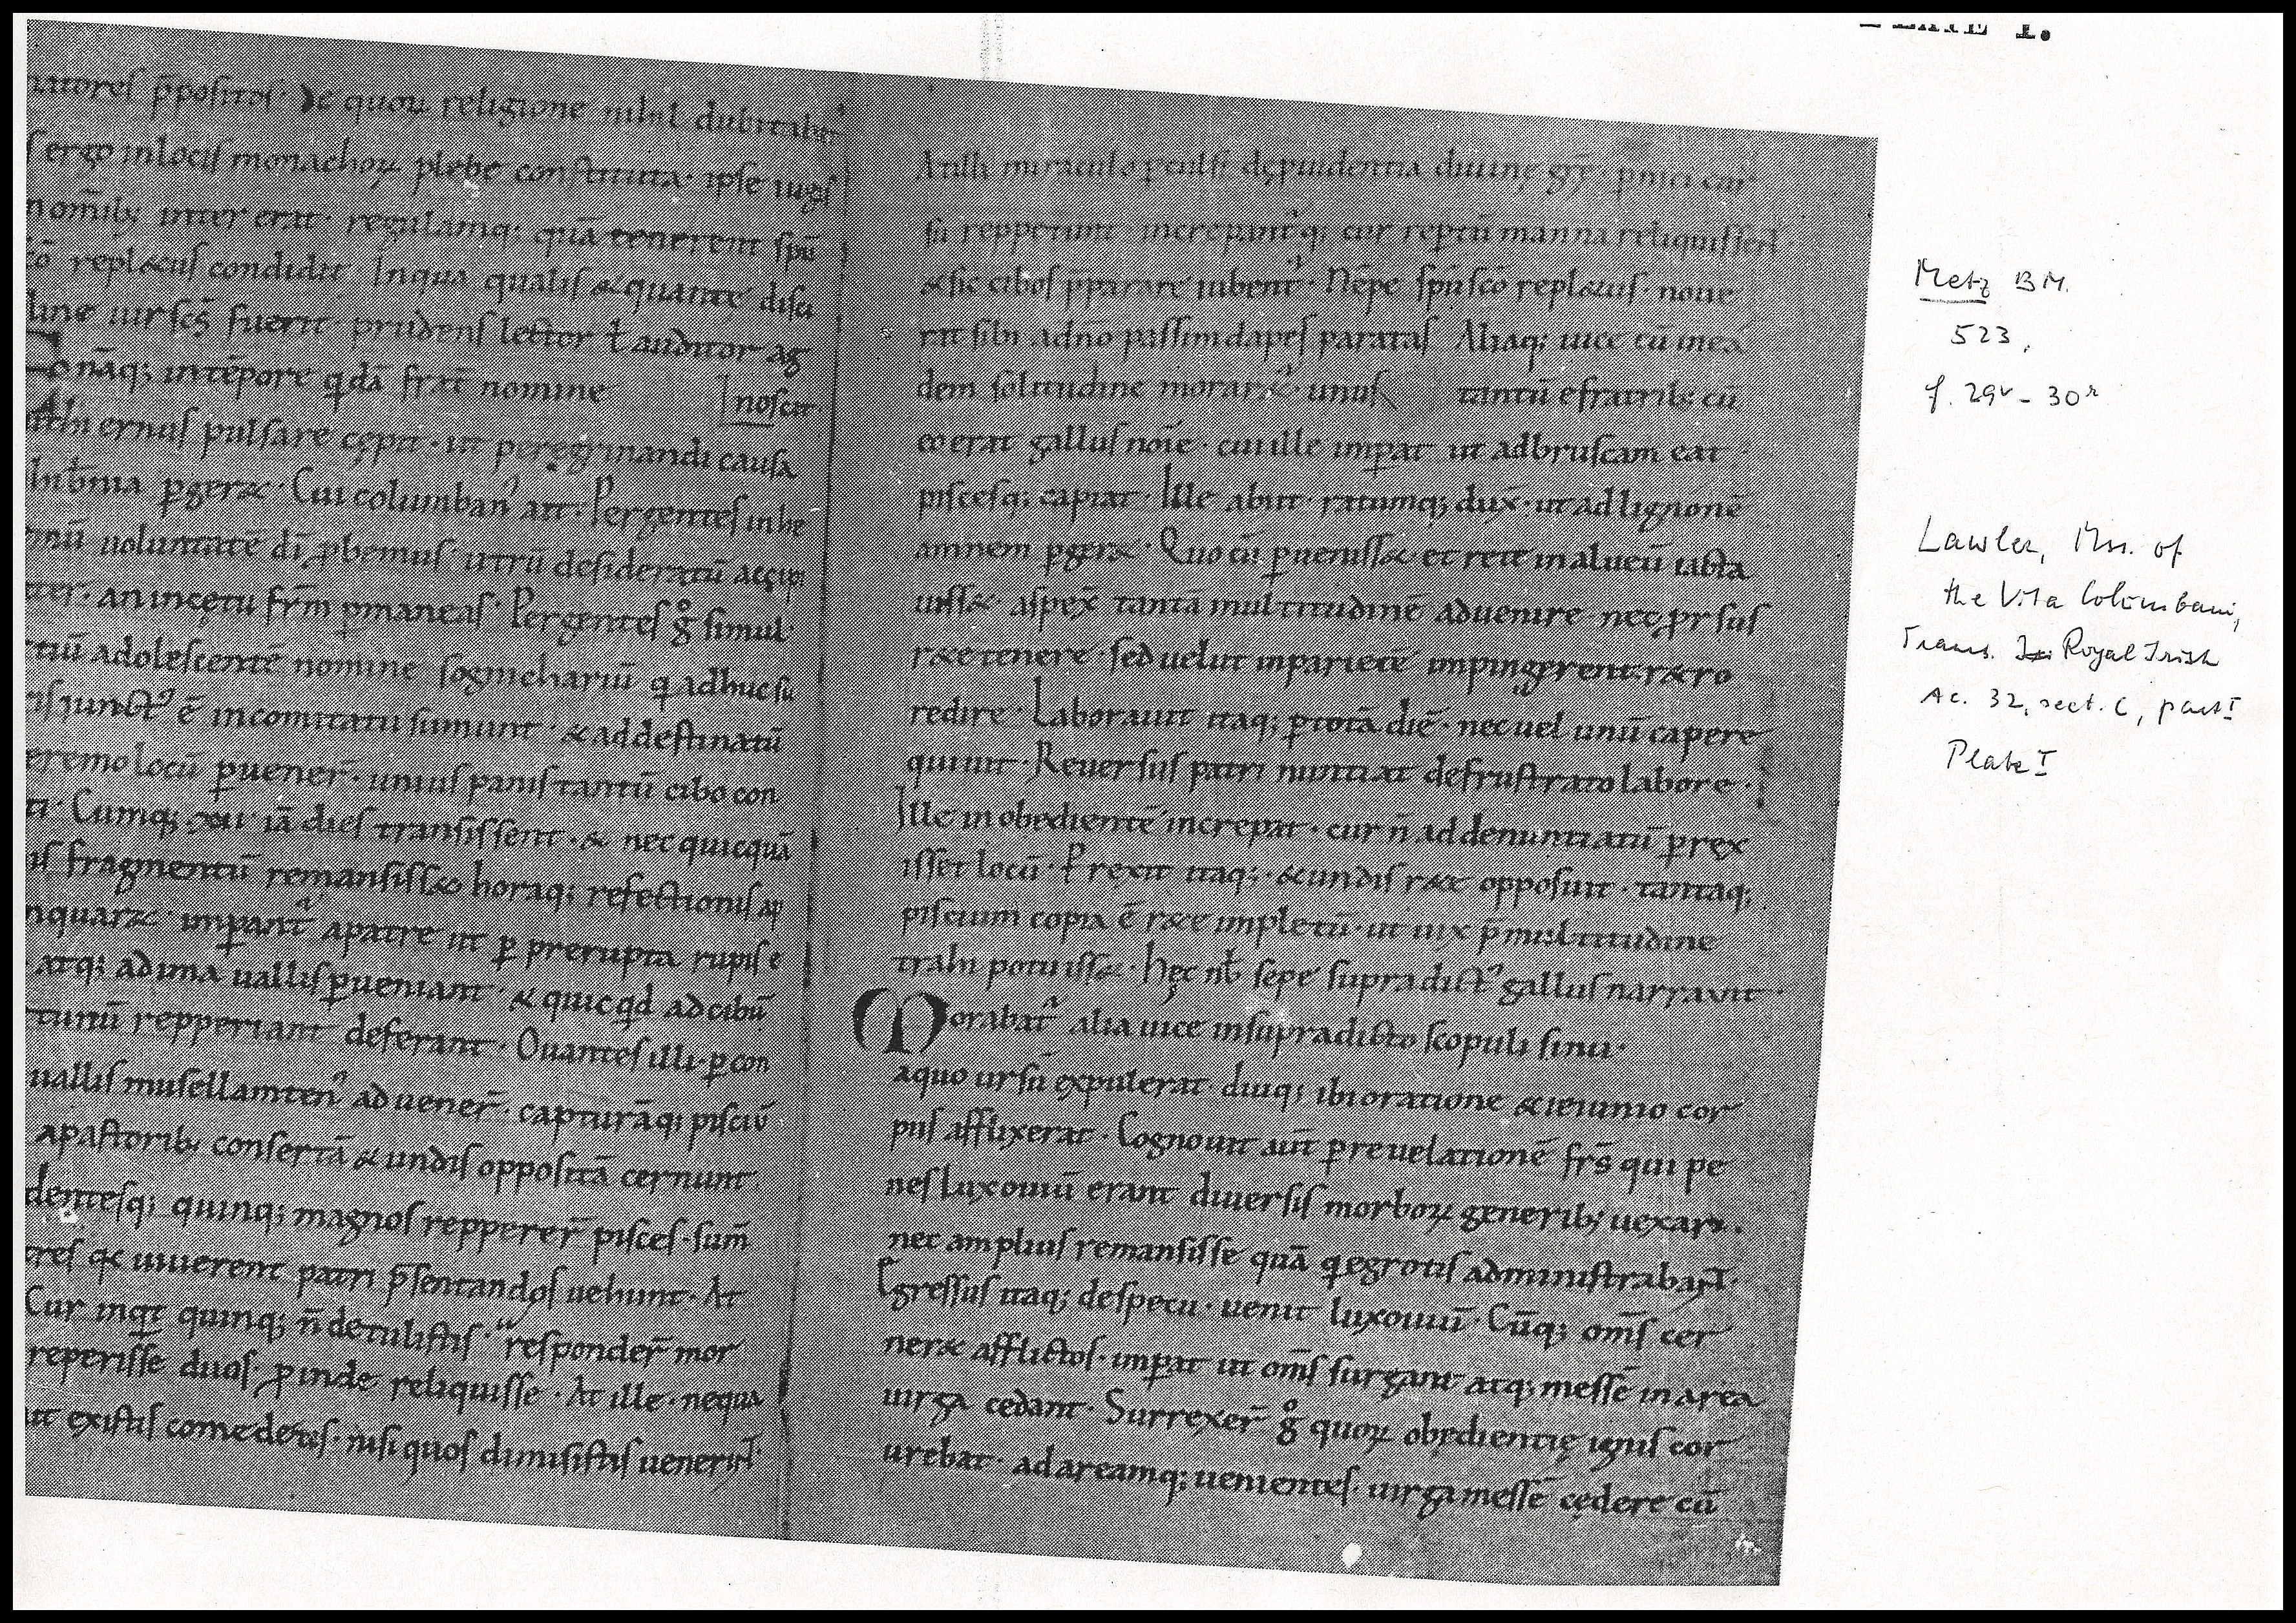 natores p̄positos. De quoꝝ religione nihil dubitabat᷒
s ergo in locis monachoꝝ plebe constituta. ipse
nomib; inter erat. regulamq; quā tenerent spū
cō repl&us condidit. In qua qualis & quantę disci
line uir sc̄s fuerit prudens lector ł auditor ag
noscit
nāq; in tēpore qdā frat̄ nomine
ernus pulsare cępit. ut peregrinandi causa
hibnia ꝑger&. Cui columban᷒ ait. Pergentes in he
mū uoluntatē dī ꝓbemus. utrū desideratū
an in cętu fr̄m ꝑmaneas. Pergentes gͦ simul
tiū adolescentē nomine sogmichariū q adhuc su
iunct᷒ ē in comitatu sumunt. & ad destinatū
eremo locū ꝑuener̄. unius panis tantū cibo con
ti. Cumq; iā dies transissent. & nec quicquā
is fragmentū remansiss& horaq; refectionis
impant̄ a patre ut ꝑ prerupta rupis e
atq; ad ima uallis ꝑueniant. & quicqd ad cibū
tunū repperiant deferant. Ouantes illi. ꝑ con
uallis musellam ten᷒ aduener̄. capturāq; pisciū
a pastorib; consertā & undis oppositā cernunt.
dentesq; quinq; magnos repperer̄ pisces. sum̄
tres q uiuerent patri p̄sentandos uehunt. At
Cur inqt quinq; n̄ detulistis. responder̄ mor
reperisse duos. ꝓinde reliquisse. At ille. nequa
ut ex istis comedetis. nisi quos dimisistis
At illi miraculo ꝑculsi dę ꝓuidentia diuinę
reppetunt increpantq; cur reptū manna reliquissent.
& sic cibos p̄parare iubent᷒. Nēpe spū scō repl&us. noue
rat sibi a dn̄o passim dapes paratas Aliaq; uice cū in eā
dem solitudine moraret᷒. unus tantū e fratrib; cū
eo erat gallus noīe. cui ille imꝑat ut ad bruscam eat
piscesq; capiat. Ille abiit. ratumq; dux̄. ut ad lignonē
amnem ꝑger&. Quo cū ꝑueniss& et rete in alueū iacta
uiss&. aspex̄ tantā multitudinē aduenire nec ꝓrsus
r&e tenere. sed uelut in parietē impingerent r&ro
redire. Laborauit itaq; ꝑ totā diē. nec uel unū capere
quiuit. Reuersus patri nuntiat de frustrato labore.
Ille inobedientē increpat. cur n̄ ad denuntiatū ꝑrex
isset locū. Prexit itaq;. & undis r&e opposuit. tantaq;
piscium copia ē r&e impletū. ut uix p̄ multitudine
trahi potuiss&. Hęc nb̄ sepe supradict᷒ gallus narrauit.
Morabat᷒ alia uice in supradicto scopuli sinu.
a quo ursū expulerat. diuq; ibi oratione & ieiunio cor
pus afflixerat. Cognouit aut̄ ꝑ reuelationē fr̄s qui pe
nes luxouiū erant diuersis morboꝝ generib; uexari.
nec amplius remansisse quā q egrotis administrabant.
Egressus itaq; despecu. uenit luxouiū. Cūq; om̄s cer
ner& afflictos. imꝑat ut om̄s surgant atq; messē in area
uirga cedant. Surrexer̄ gͦ quoꝝ obędientię ignis cor
urebat. ad areamq; uenientes. uirga messē cędere cū
PLATE I.
Metz BM.
523,
f. 29v - 30r
Lawler, Mss. of
the Vita Columbani,
Trans. Royal Irish
Ac. 32, sect. C, part I
Plate I